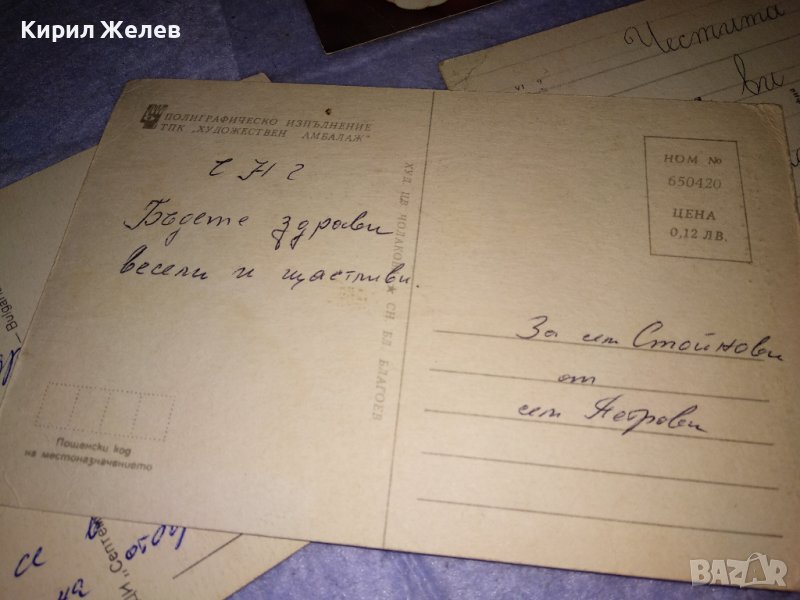 Кирил Желев
Честита
ви
ПОЛИГРАФИЧЕСКО ИЗПЪЛНЕНИЕ
ТПК „ХУДОЖЕСТВЕН АМБАЛАЖ"
Ч Н Г
Бъдете здрави
весели и щастливи.
ХУД. ЦВ. ЧОЛАКОВА ★ СН. БЛ. БЛАГОЕВ
НОМ №
650420
ЦЕНА
0,12 ЛВ.
За сем Стойнови
от
сем Петрови
Пощенски код
на местоназначението
BAZAR